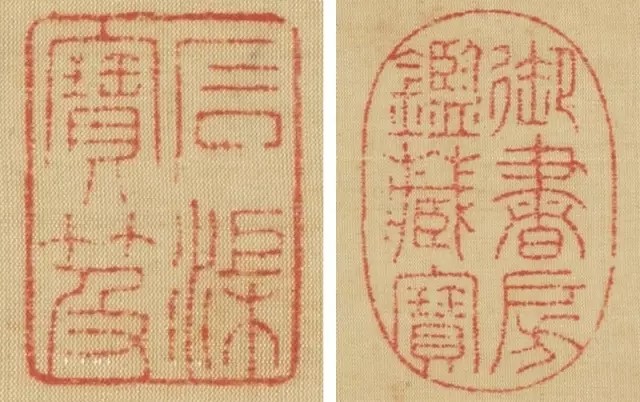 石渠
寶笈
御書房
鑑藏寶